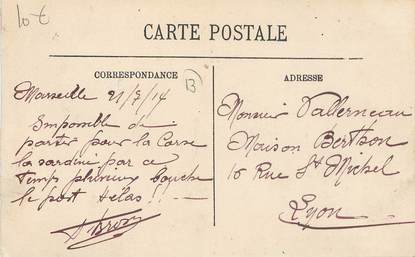 lot
CARTE POSTALE
CORRESPONDANCE
B
ADRESSE
Marseille 21/7/14
Impossible de
partir pour la Corse
la sardine par ce
temps pluvieux bouche
le port Hélas !!
Monsieur Vallerneau
Maison Berthon
16 Rue St Michel
Lyon